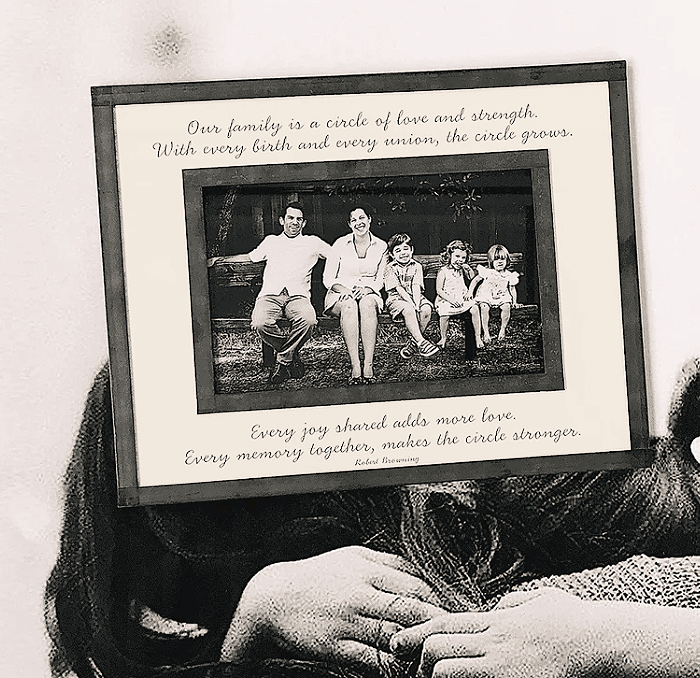 Our family is a circle of love and strength.
With every birth and every union, the circle grows.
Every joy shared adds more love.
Every memory together, makes the circle stronger.
Robert Browning